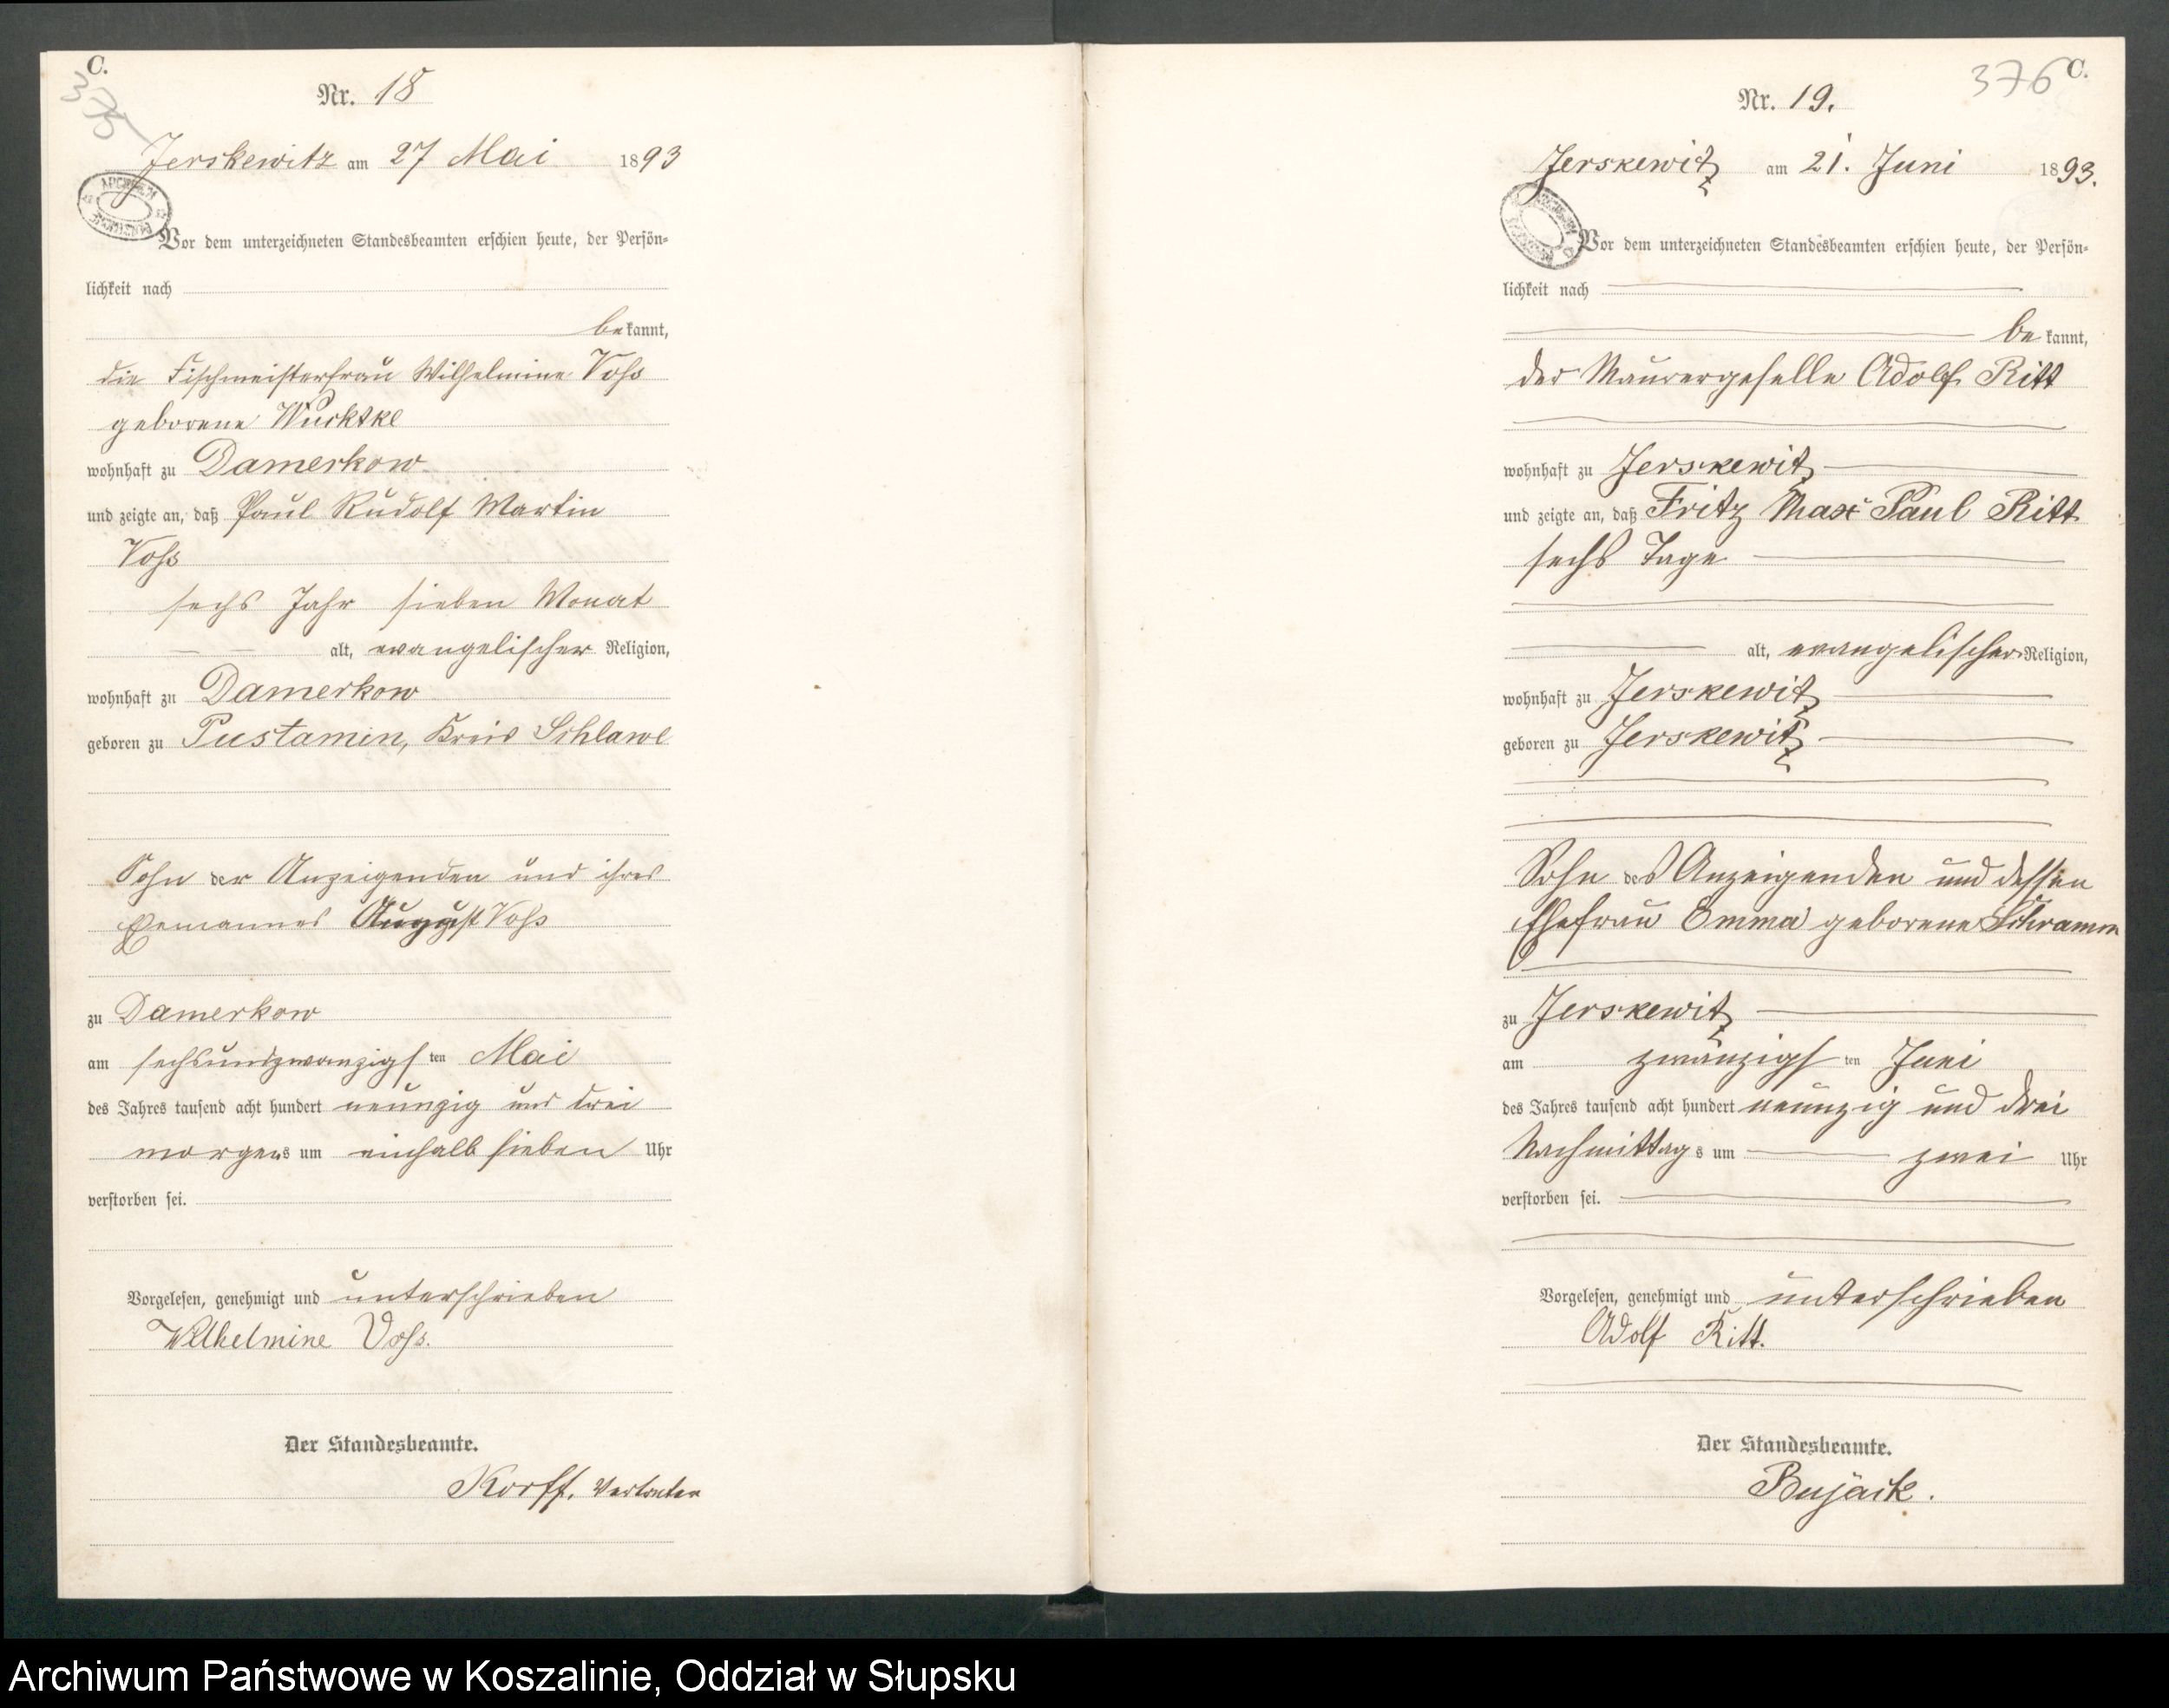 C.
375
Nr. 18
Jerskewitz am 27 Mai 1893
Vor dem unterzeichneten Standesbeamten erschien heute, der Persön-
lichkeit nach
bekannt,
die Fischmeisterfrau Wilhelmine Voß
geborene
wohnhaft zu Damerkow
und zeigte an, daß Paul Rudolf Martin
Voß
sechs Jahr sieben Monat
alt, evangelischer Religion,
wohnhaft zu Damerkow
geboren zu Pustamin, Kreis Schlawe
Sohn der Anzeigenden und ihres
Ehemannes August Voß
zu Damerkow
am sechsundzwanzigsten Mai
des Jahres tausend acht hundert neunzig und drei
morgens um einhalb sieben Uhr
verstorben sei.
Vorgelesen, genehmigt und unterschrieben
Wilhelmine Voß.
Der Standesbeamte.
Korff, Vertreter
376
C.
Nr. 19.
Jerskewitz am 21. Juni 1893.
Vor dem unterzeichneten Standesbeamten erschien heute, der Persön-
lichkeit nach
bekannt,
der Maurergeselle Adolf Ritt
wohnhaft zu Jerskewitz
und zeigte an, daß Fritz Max Paul Ritt
sechs Tage
alt, evangelischer Religion,
wohnhaft zu Jerskewitz
geboren zu Jerskewitz
Sohn des Anzeigenden und dessen
Ehefrau Emma geborene Schramm
zu Jerskewitz
am zwanzigsten Juni
des Jahres tausend acht hundert neunzig und drei
Nachmittags um zwei Uhr
verstorben sei.
Vorgelesen, genehmigt und unterschrieben
Adolf Ritt.
Der Standesbeamte.
Bujack.
Archiwum Państwowe w Koszalinie, Oddział w Słupsku